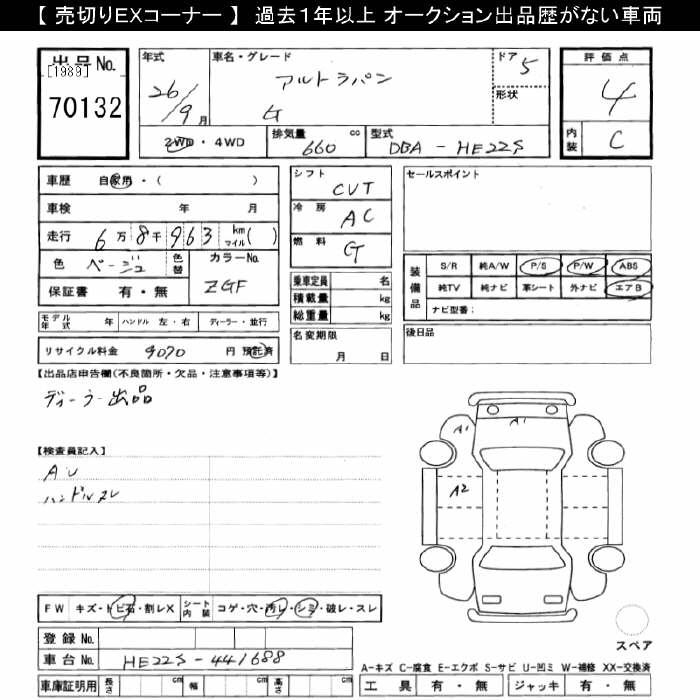 【 売切りEXコーナー 】 過去１年以上 オークション出品歴がない車両
出品No. 年式 車名・グレード ドア 5 評価点
[1989] アルトラパン
70132 26/9月 G 形状 4
2WD・4WD 排気量 660 cc 型式 DBA - HE22S 内装 C
車歴 自家用・( ) シフト CVT セールスポイント
車検 年 月 冷房 AC
走行 6万8千963 km マイル ( ) 燃料 G
色 ベージュ 色替 カラーNo. ZGF 乗車定員 名 装備品 S/R 純A/W P/S P/W ABS
保証書 有・無 積載量 kg 純TV 純ナビ 革シート 外ナビ エアB
総重量 kg ナビ型番：
モデル年式 年 ハンドル 左・右 ディーラー・並行 名変期限 後日品
リサイクル料金 9070 円 預託済 月 日
【出品店申告欄(不良箇所・欠品・注意事項等)】
ディーラー出品
【検査員記入】
AU
ハンドルスレ
A1 A1
A2
FW キズ・トビ石・割レX シート内装 コゲ・穴・汚レ・シミ・破レ・スレ
登録 No.
スペア
車台 No. HE22S-441688
A-キズ C-腐食 E-エクボ S-サビ U-凹ミ W-補修 XX-交換済
車庫証明用 長さ cm 幅 cm 高さ cm 工具 有・無 ジャッキ 有・無